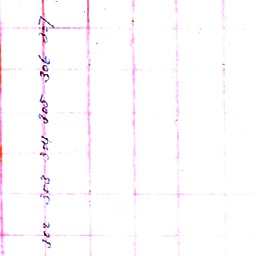 302 303 304 305 306 307